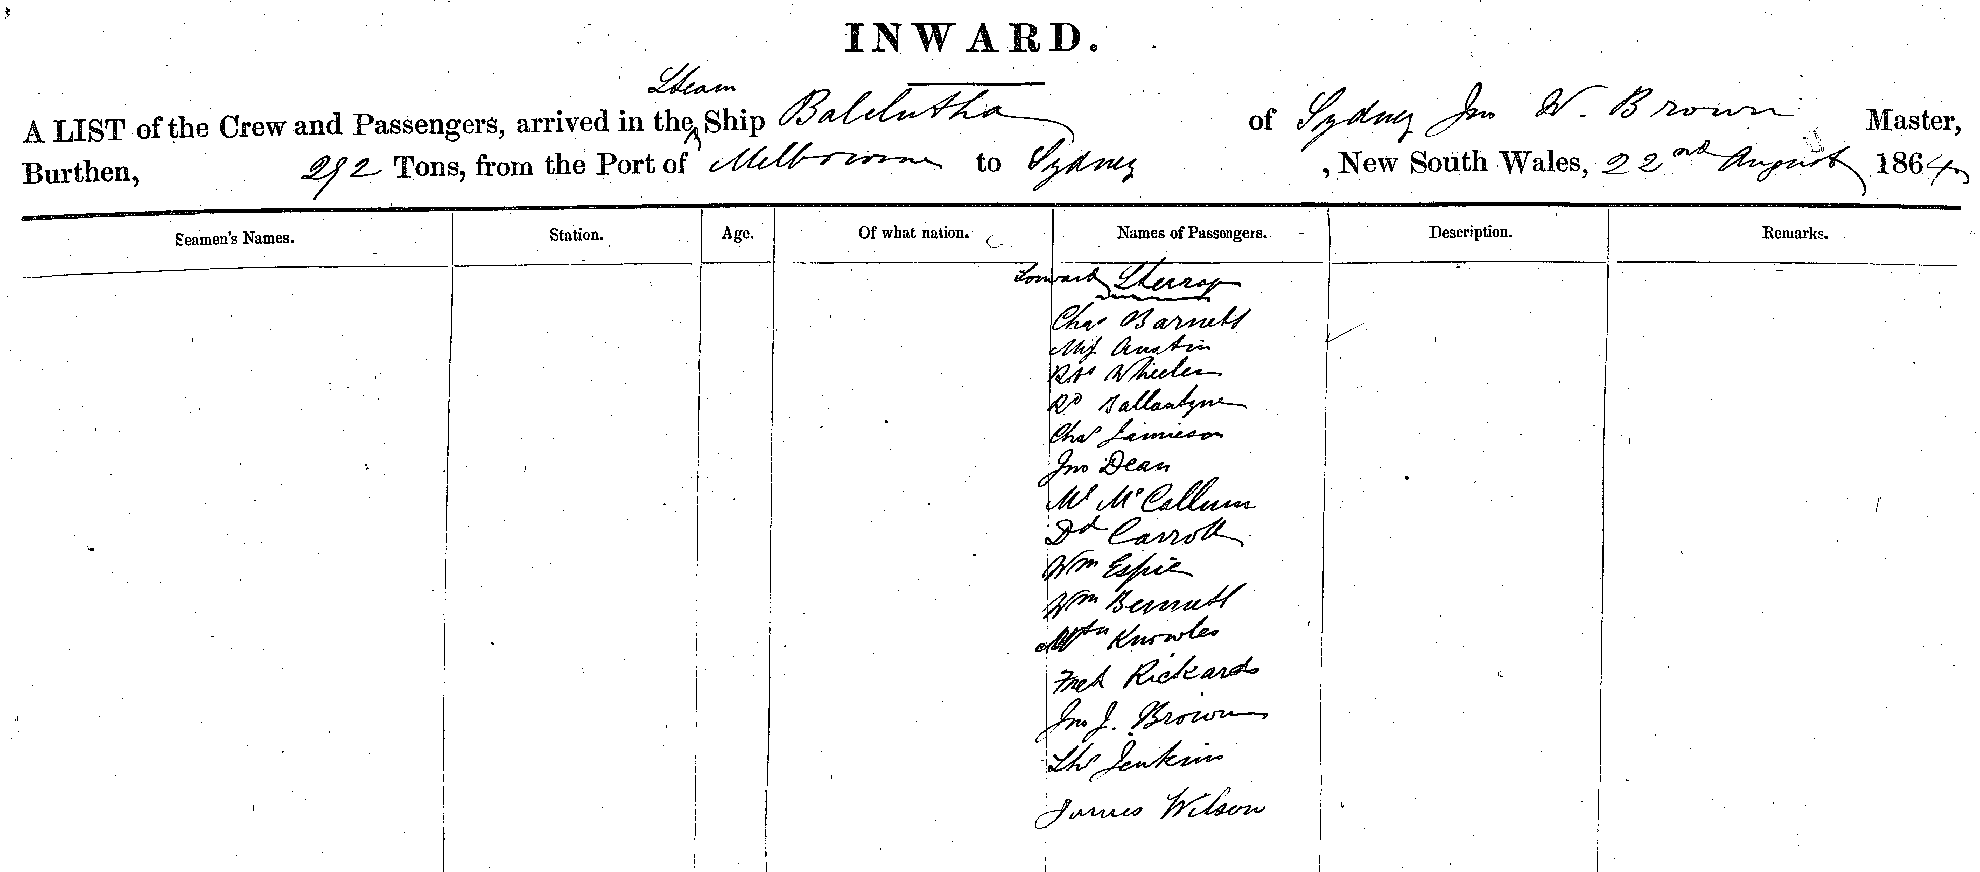 INWARD.
Steam
A LIST of the Crew and Passengers, arrived in the Ship Balclutha of Sydney Jno W. Brown Master,
Burthen, 292 Tons, from the Port of Melbourne to Sydney, New South Wales, 22nd August 1864
Seamen's Names. Station. Age. Of what nation. Names of Passengers. Description. Remarks.
Forward Steerage
Chas Barnett
Miss Austin
Wheeler
Rd Ballantyne
Chas Jamieson
Jno Dean
Mr McCallum
Dd Carroll
Wm Espie
Wm Bennett
Knowles
Fred Rickards
Jno J. Brown
Thos Jenkins
James Wilson